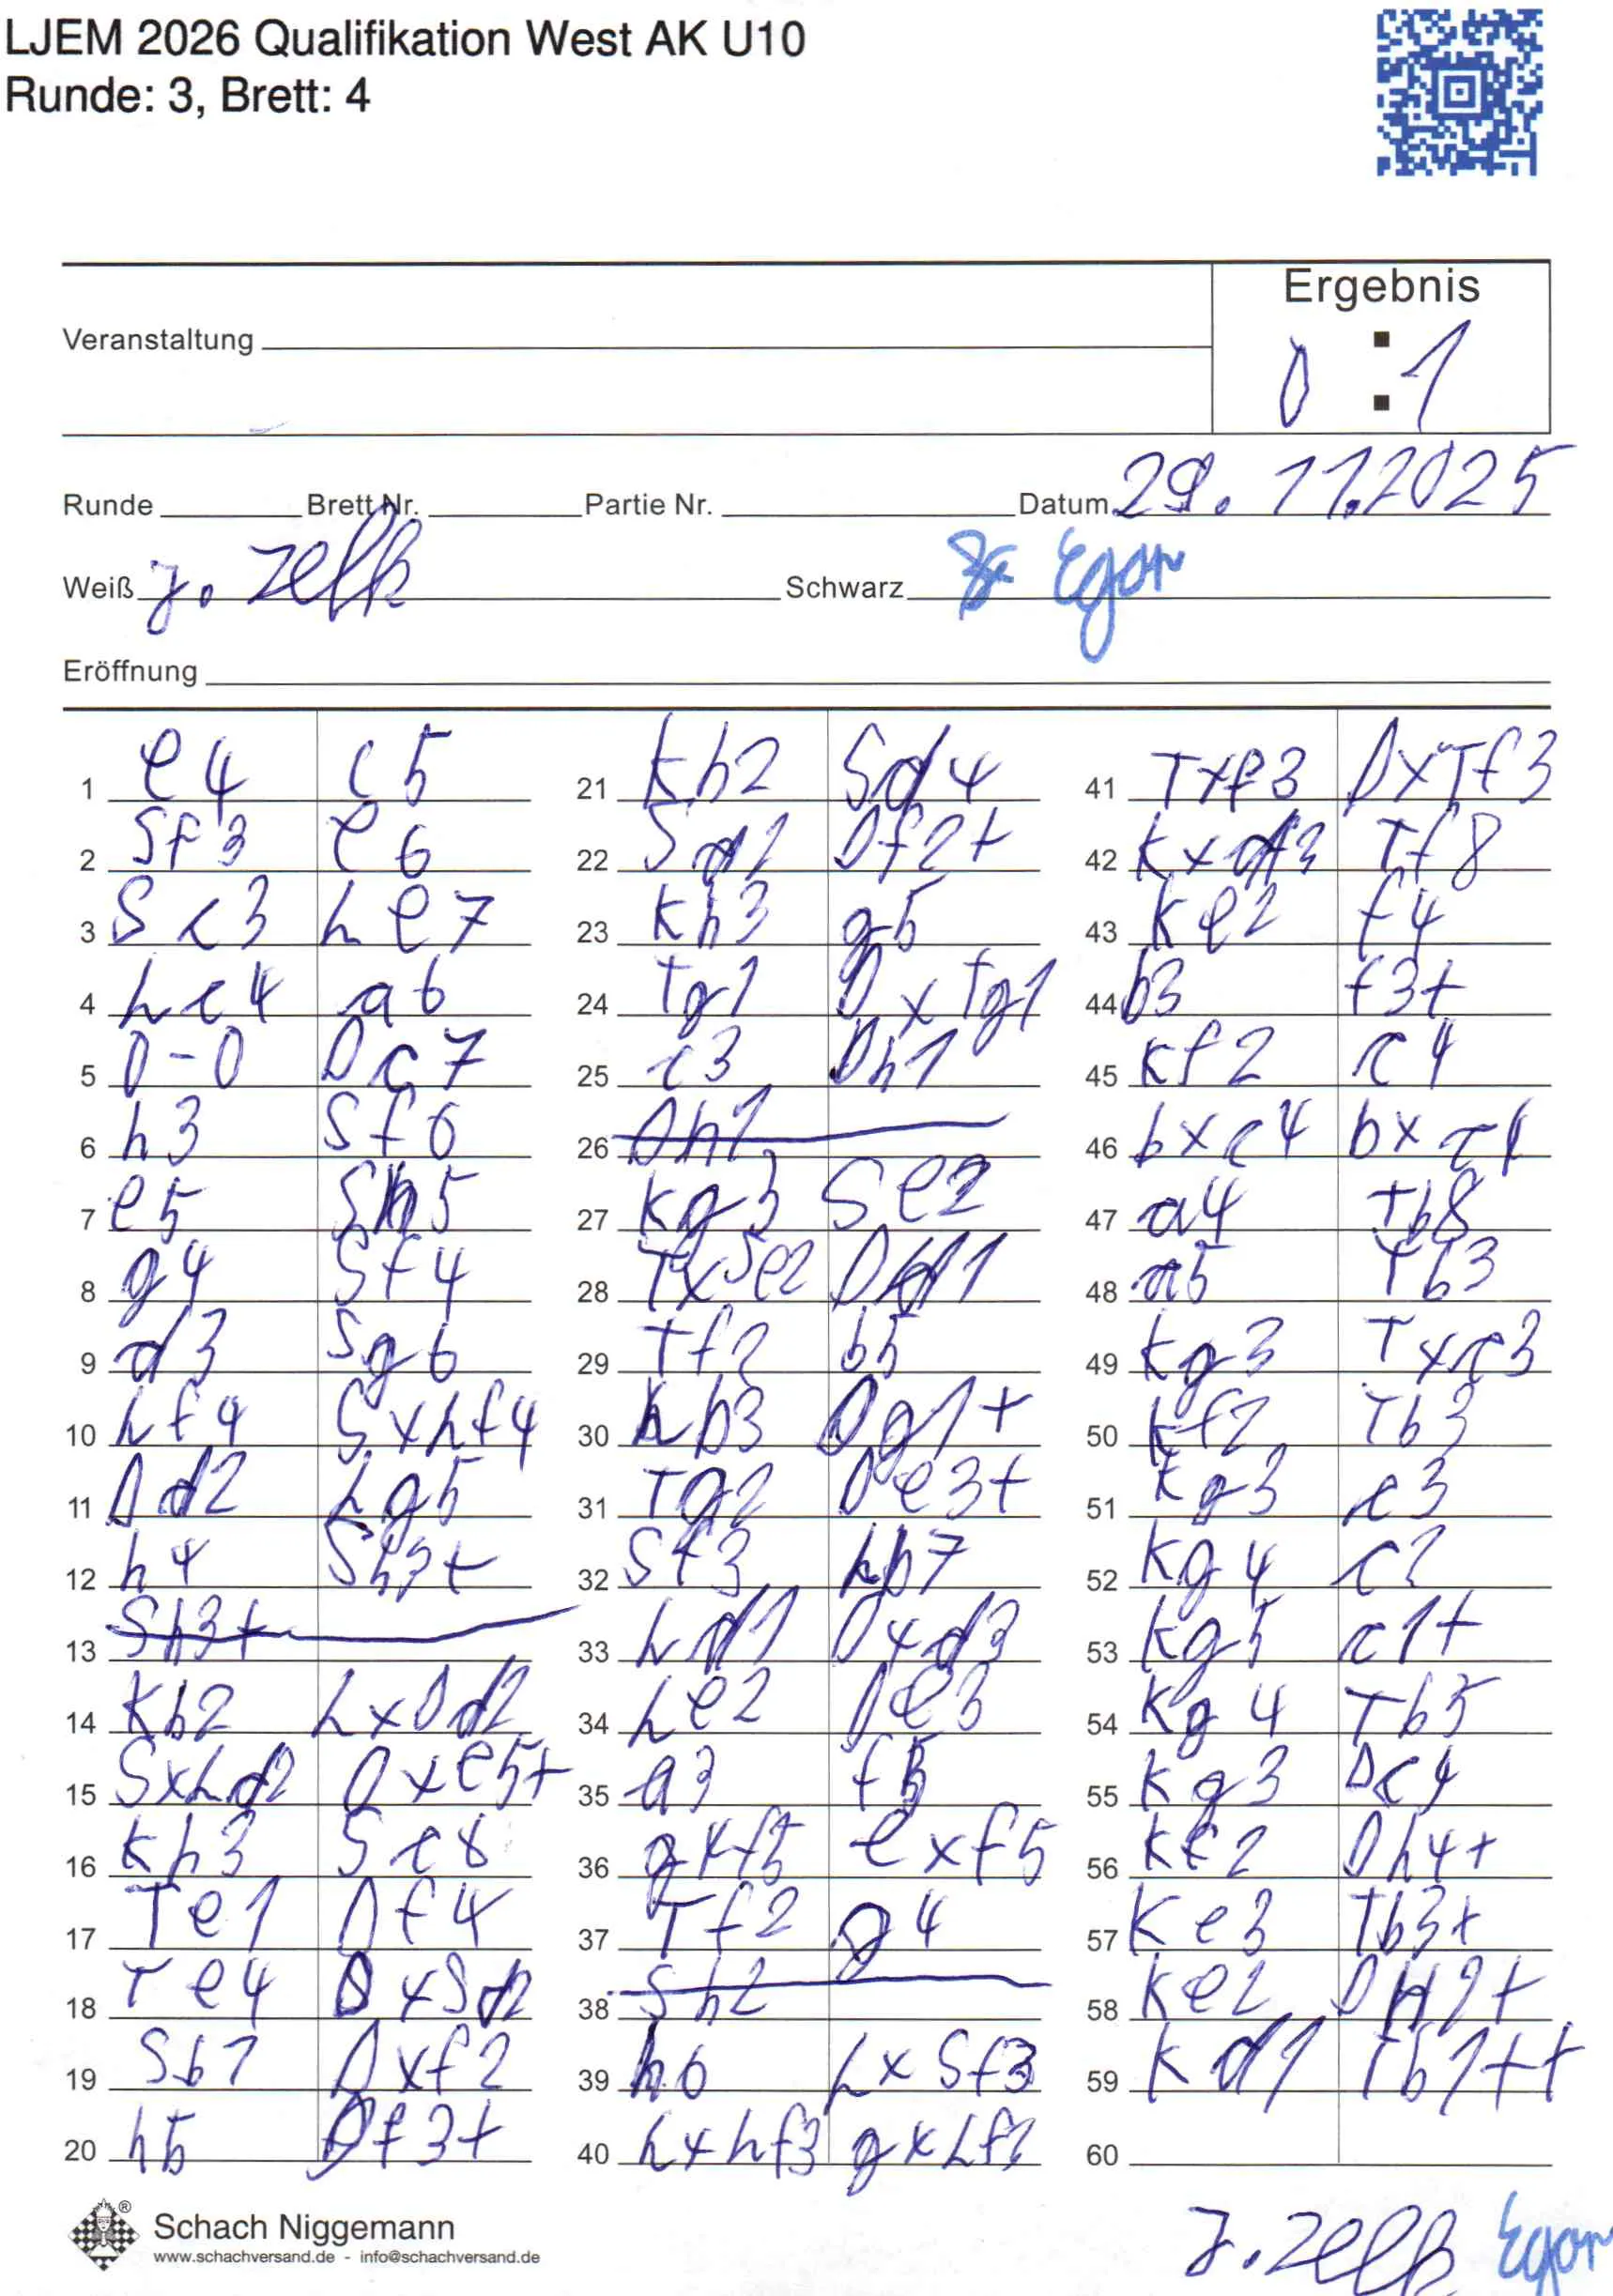 LJEM 2026 Qualifikation West AK U10
Runde: 3, Brett: 4
Ergebnis
0 : 1
Veranstaltung
Runde Brett Nr. Partie Nr. Datum 29.11.2025
Weiß J. Zelk Schwarz Egor
Eröffnung
1 e4 c5
2 Sf3 e6
3 Sc3 Le7
4 Lc4 a6
5 0-0 Dc7
6 h3 Sf6
7 e5 Sh5
8 g4 Sf4
9 d3 Sg6
10 Lf4 SxLf4
11 Dd2 Lg5
12 h4 Sh3+
13 Sh3+
14 Kh2 LxDd2
15 SxLd2 Dxe5+
16 Kh3 Sc6
17 Te1 Df4
18 Te4 DxSd2
19 Sb1 Dxf2
20 h5 Df3+
21 Kh2 Sd4
22 Sd2 Df2+
23 Kh3 g5
24 Tg1 DxTg1
25 c3 Dh1
26 Dh1
27 Kg3 Se2
28 TxSe2 Dd1
29 Tf2 b5
30 Lb3 Dg1+
31 Tg2 De3+
32 Sf3 Lb7
33 Ld1 Dxd3
34 Le2 De3
35 a3 f5
36 gxf5 exf5
37 Tf2 g4
38 Sh2
39 h6 LxSf3
40 LxLf3 gxLf3
41 Txf3 DxTf3
42 Kxf3 Tf8
43 Ke2 f4
44 b3 f3+
45 Kf2 c4
46 bxc4 bxc4
47 a4 Tb8
48 a5 Tb3
49 Kg3 Txc3
50 Kf2 Tb3
51 Kg3 c3
52 Kg4 c2
53 Kg5 c1+
54 Kg4 Tb5
55 Kg3 Dc4
56 Kf2 Dh4+
57 Ke3 Tb3+
58 Ke2 Dh2+
59 Kd1 Tb1++
60
Schach Niggemann
www.schachversand.de - info@schachversand.de
J. Zelk Egor